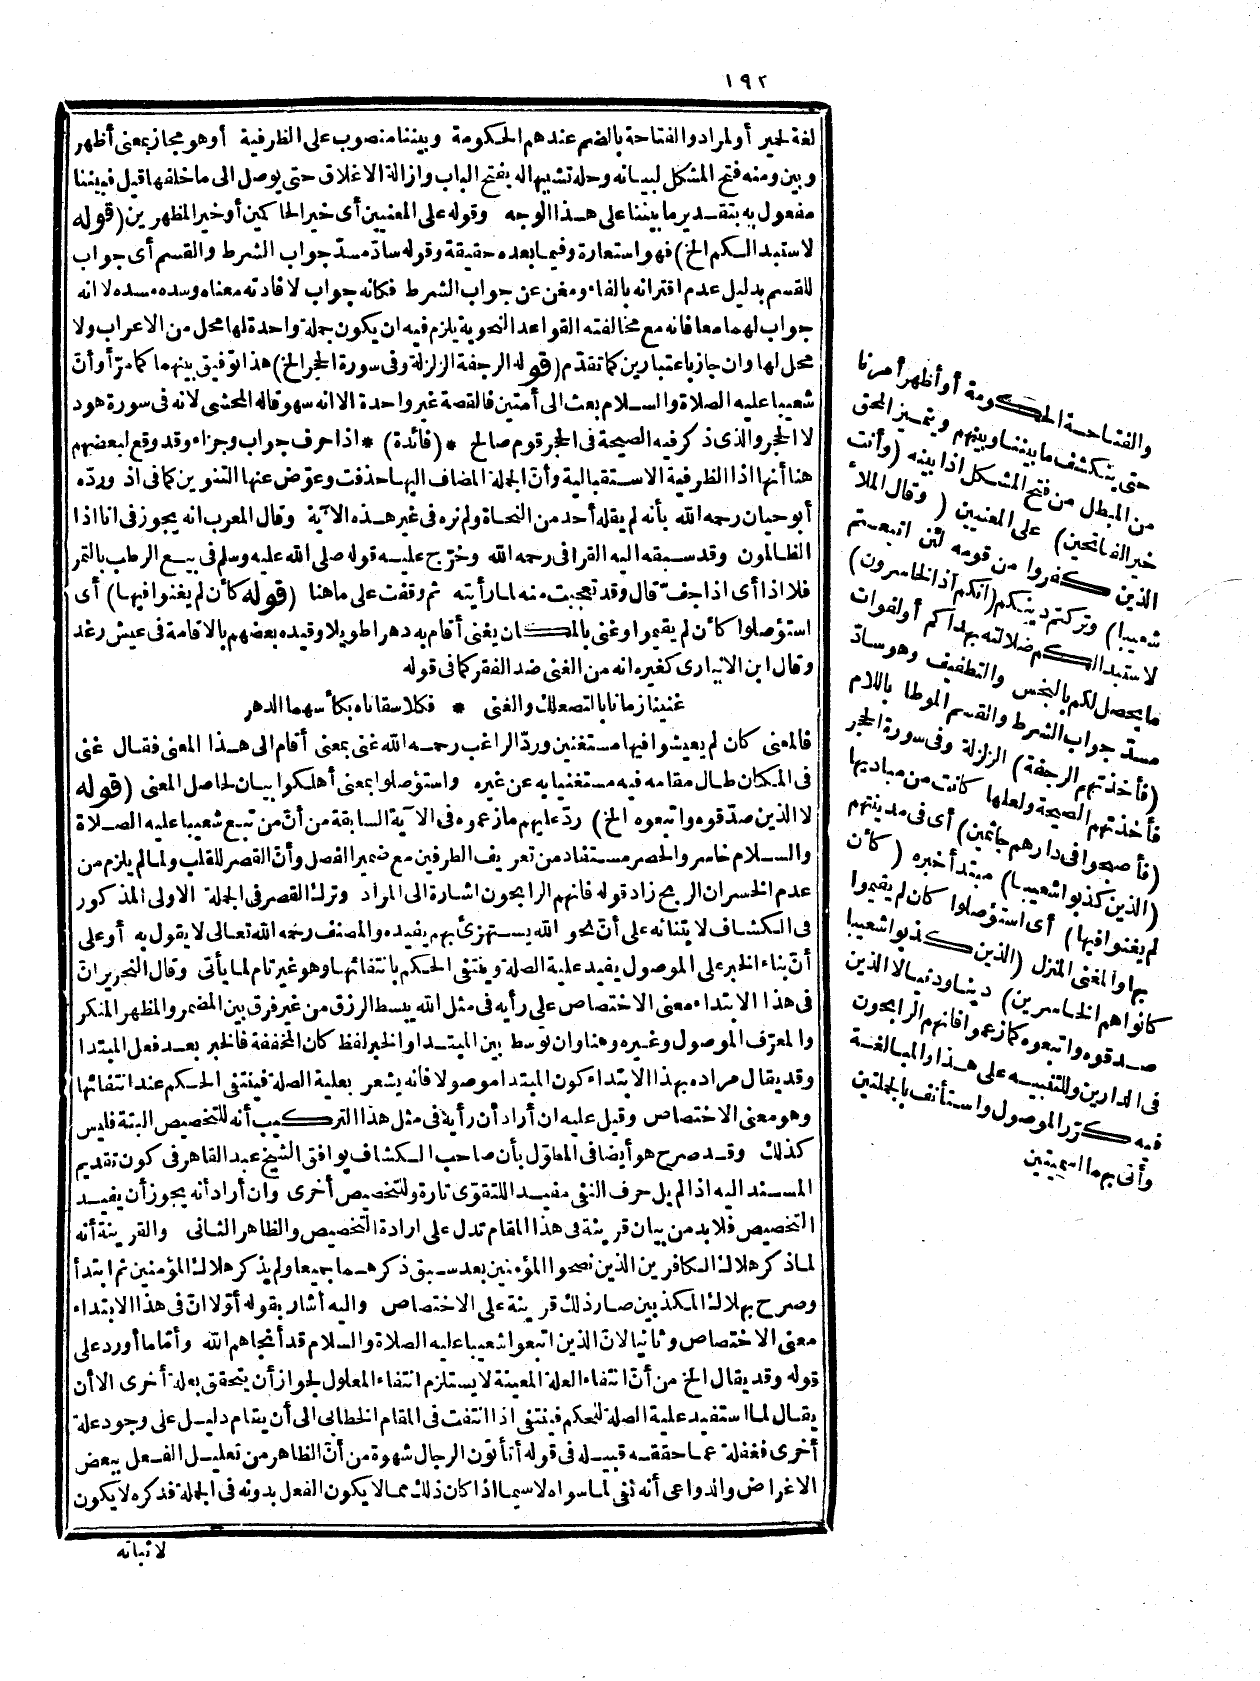 ١٩٢
لغة لحمير أو لمراد والفتاحة بالضم عندهم الحكومة وبيننا منصوب على الظرفية أو هو مجاز بمعنى أظهر
وبين ومنه فتح المشكل لبيانه وحله تشبيها له بفتح الباب وازالة الاغلاق حتى يوصل الى ما خلفها قيل فبيننا
مفعول به بتقدير ما بيننا على هذا الوجه وقوله على المعنيين أى خير الحاكمين أو خير المظهرين (قوله
لاستبدالكم الخ) فهو استعارة وفيما بعده حقيقة وقوله ساد مسد جواب الشرط والقسم أى جواب
للقسم بدليل عدم اقترانه بالفاء ومغن عن جواب الشرط فكانه جواب لافادته معناه وسده مسده لا انه
جواب لهما معا فانه مع مخالفته القواعد النحوية يلزم فيه ان يكون جملة واحدة لها محل من الاعراب ولا
محل لها وان جاز باعتبارين كما تقدم (قوله الرجفة الزلزلة وفى سورة الحجر الخ) هذا توفيق بينهما كما مرّ أو أنّ
شعيبا عليه الصلاة والسلام بعث الى أمتين فالقصة غير واحدة الا انه سهو قاله المحشى لانه فى سورة هود
لا الحجر والذى ذكر فيه الصيحة فى الحجر قوم صالح * (فائدة) * اذا حرف جواب وجزاء وقد وقع لبعضهم
هنا أنها اذا الظرفية الاستقبالية وأنّ الجملة المضاف اليها حذفت وعوّض عنها التنوين كما فى اذ وردّه
أبو حيان رحمه الله بأنه لم يقله أحد من النحاة ولم نره فى غير هذه الآية وقال المعرب انه يجوز فى انا اذا
الظالمون وقد سبقه اليه القرافى رحمه الله وخرّج عليه قوله صلى الله عليه وسلم فى بيع الرطب بالتمر
فلا اذا أى اذا جف قال وقد تعجبت منه لما رأيته ثم وقفت على ما هنا (قوله كأن لم يغنوا فيها) أى
استؤصلوا كأن لم يقيموا وغنى بالمكان يغنى أقام به دهرا طويلا وقيده بعضهم بالاقامة فى عيش رغد
وقال ابن الانبارى كغيره انه من الغنى ضد الفقر كما فى قوله
غنينا زمانا بالتصعلك والغنى * فكلا سقاناه بكأسهما الدهر
فالمعنى كان لم يعيشوا فيها مستغنين وردّ الراغب رحمه الله غنى بمعنى أقام الى هذا المعنى فقال غنى
فى المكان طال مقامه فيه مستغنيا به عن غيره واستؤصلوا بمعنى أهلكوا بيان لحاصل المعنى (قوله
لا الذين صدّقوه واتبعوه الخ) ردّ عليهم ما زعموه فى الآية السابقة من أنّ من تبع شعيبا عليه الصلاة
والسلام خاسر والحصر مستفاد من تعريف الطرفين مع ضمير الفصل وأنّ القصر للقلب ولما لم يلزم من
عدم الخسران الربح زاد قوله فانهم الرابحون اشارة الى المراد وترك القصر فى الجملة الاولى المذكور
فى الكشاف لابتنائه على أنّ نحو الله يستهزئ بهم يفيده والمصنف رحمه الله تعالى لا يقول به أو على
أنّ بناء الخبر على الموصول يفيد علية الصلة وينتفى الحكم بانتفائها وهو غير تام لما يأتى وقال النحرير انّ
فى هذا الابتداء معنى الاختصاص على رأيه فى مثل الله يبسط الرزق من غير فرق بين المضمر والمظهر المنكر
والمعرّف الموصول وغيره وهنا وان توسط بين المبتدا والخبر لفظ كان المخففة فالخبر بعد فعل المبتدا
وقد يقال مراده بهذا الابتداء كون المبتدا موصولا فأنه يشعر بعلية الصلة فينتفى الحكم عند انتفائها
وهو معنى الاختصاص وقيل عليه ان أراد أن رأيه فى مثل هذا التركيب أنه للتخصيص البتة فليس
كذلك وقد صرح هو أيضا فى المطوّل بأن صاحب الكشاف يوافق الشيخ عبد القاهر فى كون تقديم
المسند اليه اذا لم يل حرف النفى مفيدا للتقوى تارة وللتخصيص أخرى وان أراد أنه يجوز أن يفيد
التخصيص فلا بد من بيان قرينة فى هذا المقام تدل على ارادة التخصيص والظاهر الثانى والقرينة أنه
لما ذكر هلاك الكافرين الذين نصحوا المؤمنين بعد سبق ذكرهما جميعا ولم يذكر هلاك المؤمنين ثم ابتدأ
وصرح بهلاك المكذبين صار ذلك قرينة على الاختصاص واليه أشار بقوله أوّلا انّ فى هذا الابتداء
معنى الاختصاص وثانيا لانّ الذين اتبعوا شعيبا عليه الصلاة والسلام قد أنجاهم الله وأمّا ما أورد على
قوله وقد يقال الخ من أنّ انتفاء العلة المعينة لا يستلزم انتفاء المعلول لجواز أن يتحقق بعلة أخرى الا أن
يقال لما استفيد علية الصلة للحكم فينتفى اذا انتفت فى المقام الخطابى الى أن يقام دليل على وجود علة
أخرى فغفلة عما حققه قبيله فى قوله أتأتون الرجال شهوة من أنّ الظاهر من تعليل الفعل ببعض
الاغراض والدواعى أنه نفى لما سواه لا سيما اذا كان ذلك مما لا يكون الفعل بدونه فى الجملة فذكره لا يكون
لاثباته
والفتاحة الحكومة أو أظهر أمرنا
حتى ينكشف ما بيننا وبينهم ويتميز المحق
من المبطل من فتح المشكل اذا بينه (وأنت
خير الفاتحين) على المعنيين (وقال الملأ
الذين كفروا من قومه لئن اتبعتم
شعيبا) وتركتم دينكم (انكم اذا لخاسرون)
لاستبدالكم ضلالته بهداكم أو لفوات
ما يحصل لكم بالبخس والتطفيف وهو ساد
مسد جواب الشرط والقسم الموطا باللام
(فأخذتهم الرجفة) الزلزلة وفى سورة الحجر
فأخذتهم الصيحة ولعلها كانت من مباديها
(فأصبحوا فى دارهم جاثمين) أى فى مدينتهم
(الذين كذبوا شعيبا) مبتدأ خبره (كأن
لم يغنوا فيها) أى استؤصلوا كان لم يقيموا
بها والمغنى المنزل (الذين كذبوا شعيبا
كانوا هم الخاسرين) دينا ودنيا لا الذين
صدقوه واتبعوه كما زعموا فانهم الرابحون
فى الدارين وللتنبيه على هذا والمبالغة
فيه كرّر الموصول واستأنف بالجملتين
وأتى بهما اسميتين